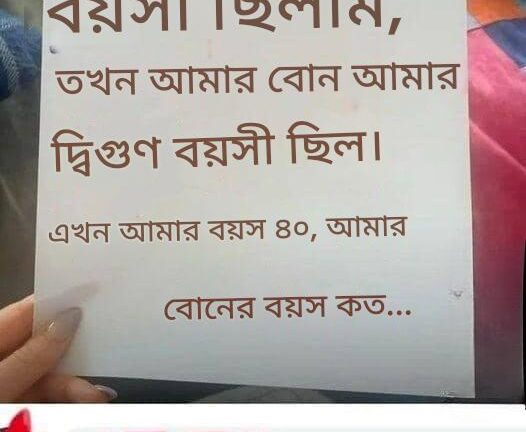 বয়সী ছিলাম,
তখন আমার বোন আমার
দ্বিগুণ বয়সী ছিল।
এখন আমার বয়স ৪০, আমার
বোনের বয়স কত...